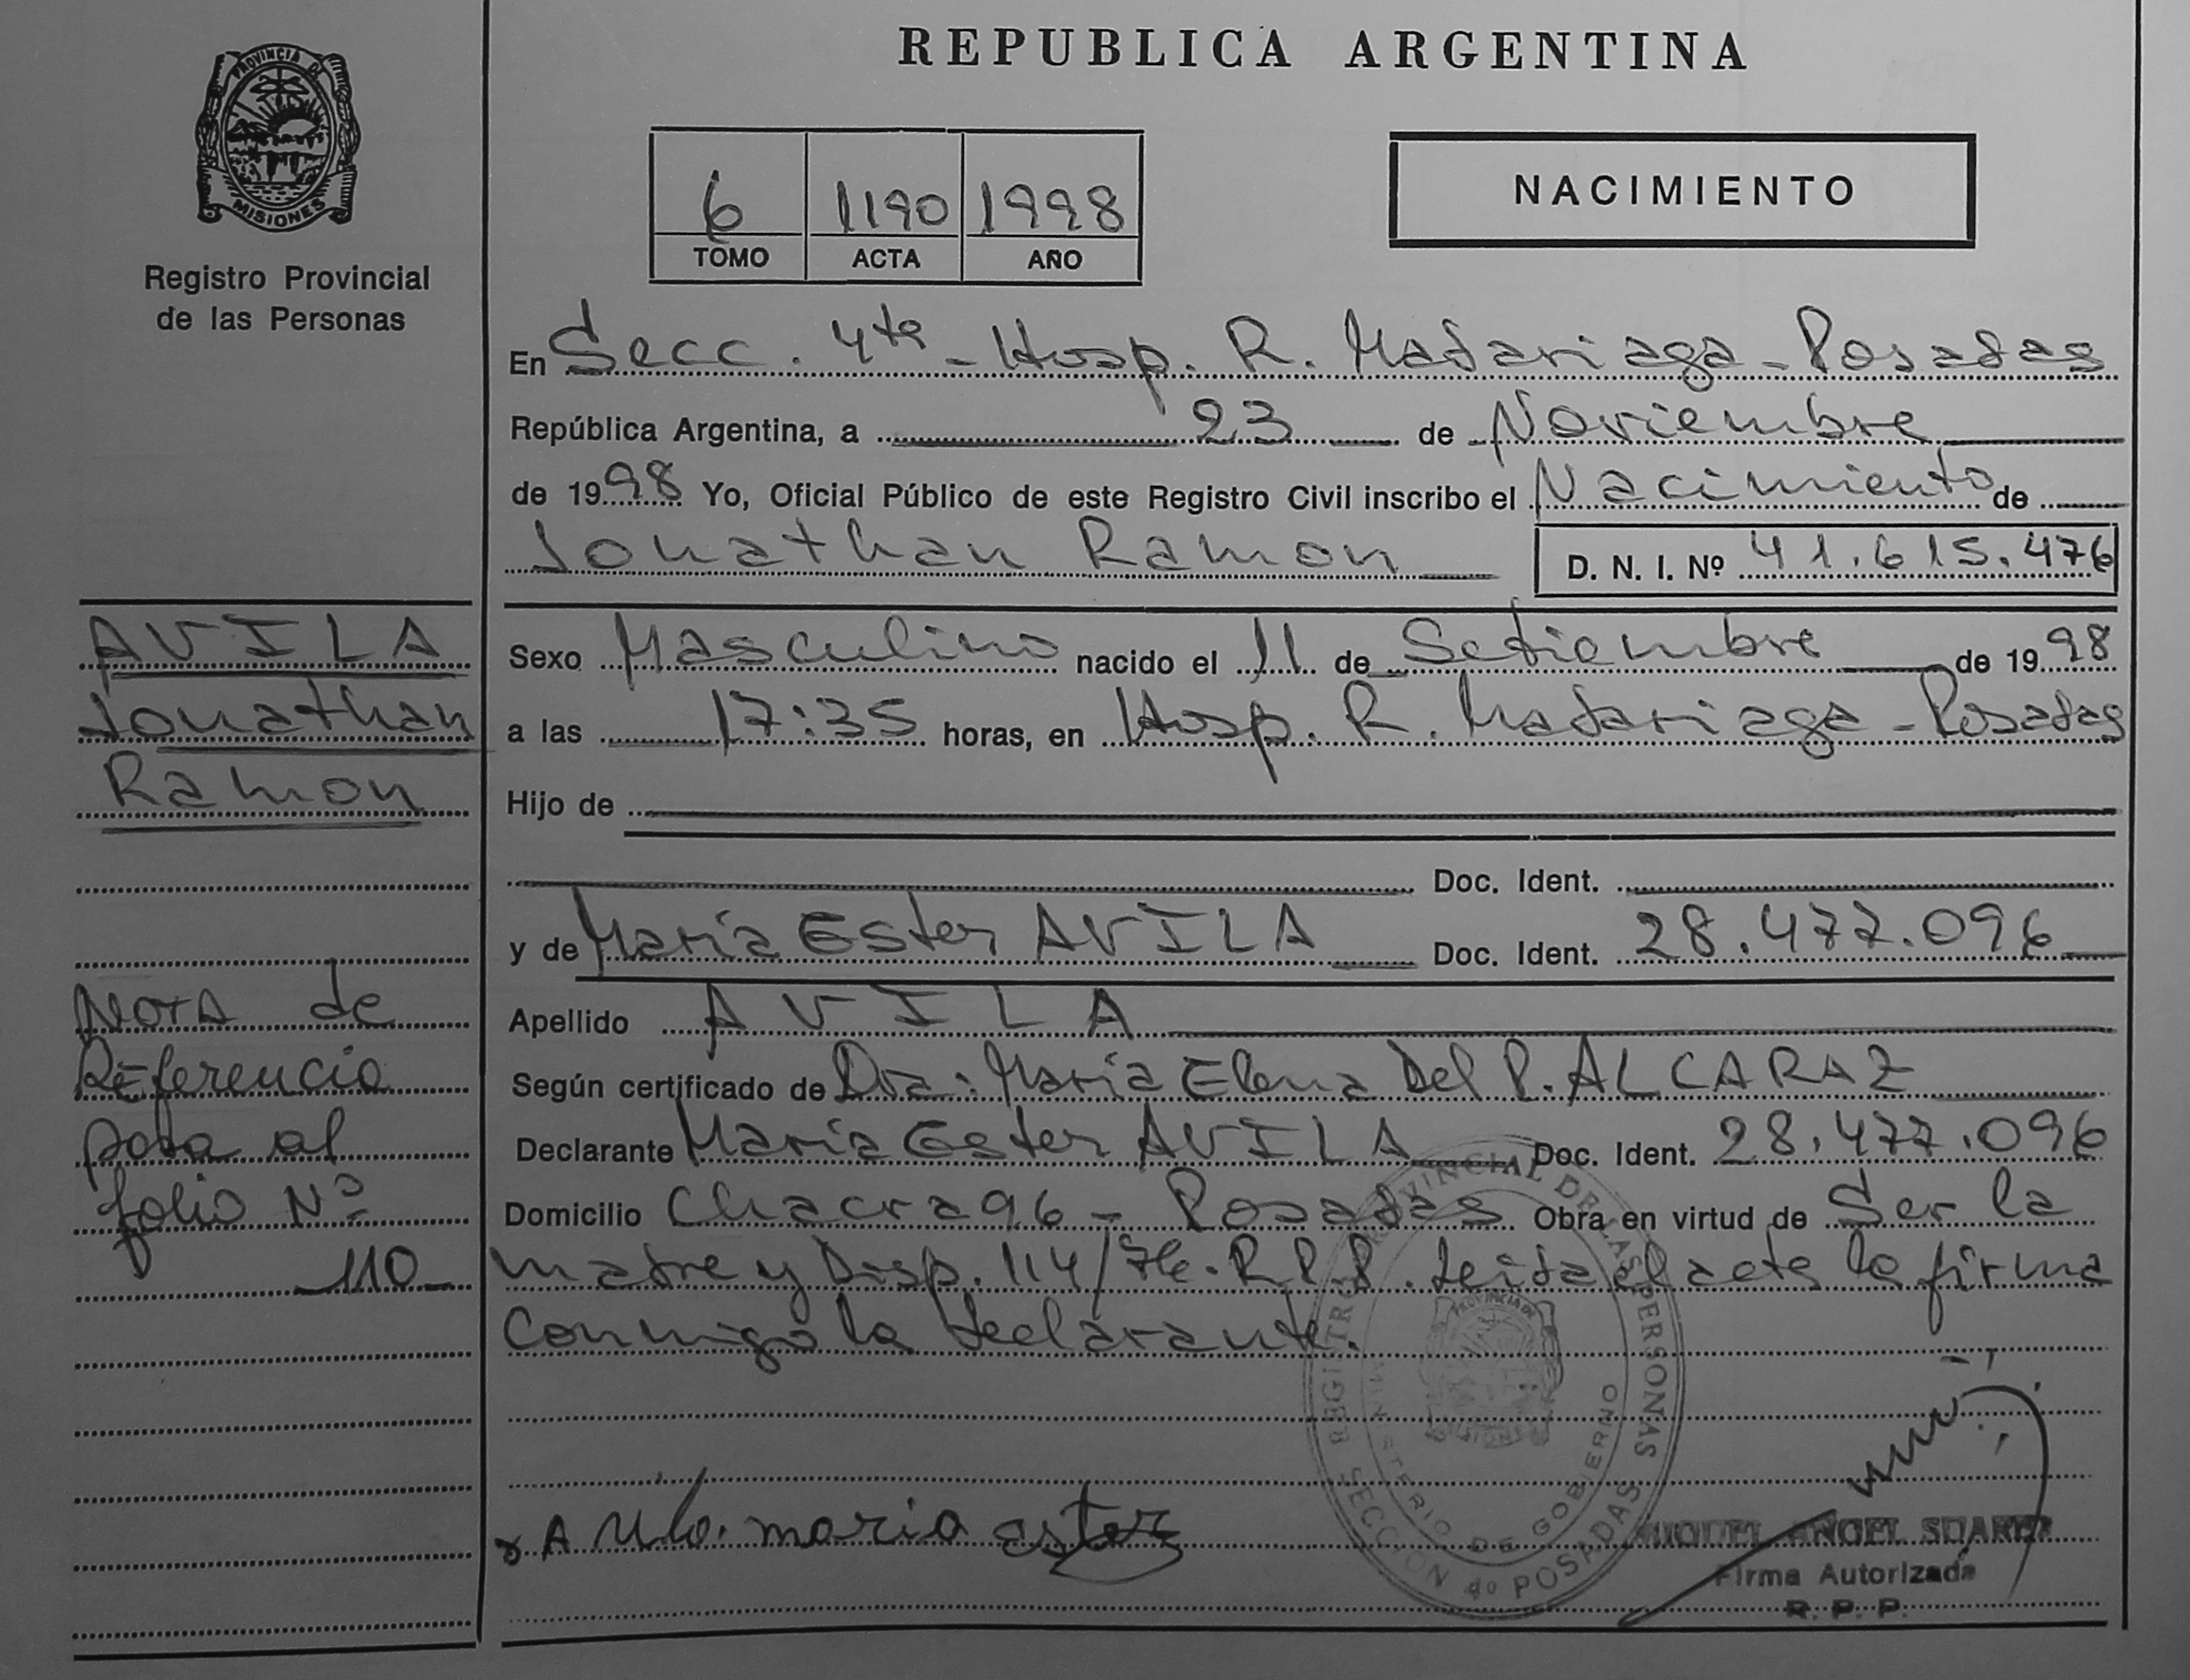 REPUBLICA ARGENTINA
PROVINCIA DE
MISIONES
Registro Provincial
de las Personas
6 1190 1998
TOMO ACTA AÑO
NACIMIENTO
En Secc. 4ta - Hosp. R. Madariaga - Posadas
República Argentina, a 23 de Noviembre
de 1998 Yo, Oficial Público de este Registro Civil inscribo el Nacimiento de
Jonathan Ramon D. N. I. Nº 41.615.476
AVILA
Jonathan
Ramon
Sexo Masculino nacido el 11 de Setiembre de 1998
a las 17:35 horas, en Hosp. R. Madariaga - Posadas
Hijo de
Doc. Ident.
y de María Ester AVILA Doc. Ident. 28.477.096
Apellido AVILA
Según certificado de Dra. María Elena Del P. ALCARAZ
Declarante María Ester AVILA Doc. Ident. 28.477.096
Domicilio Chacra 96 - Posadas Obra en virtud de Ser la
madre y Disp. 114/76. R.P.P. Leida el acta la firma
Conmigo la declarante.
Nota de
Referencia
pasa al
folio Nº
110
REGISTRO PROVINCIAL DE LAS PERSONAS
MINISTERIO DE GOBIERNO
SECCION 4º POSADAS
PROVINCIA DE
MISIONES
x Avila. maria ester
MIGUEL ANGEL SUAREZ
Firma Autorizada
R. P. P.